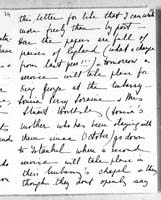 this letter for like that I can write
more freely than by post
Here the papers are full of
praises of England (what a change
from last year!!) & tomorrow a
service will take place for
King George at the Embassy
Louisa Percy Loraine & Mrs
Stuart Wortley (Louisa's
mother who has been staying with
them since October) go down
to Istanbul where a second
service will take place in
their Embassy's chapel & they
though they don't openly say